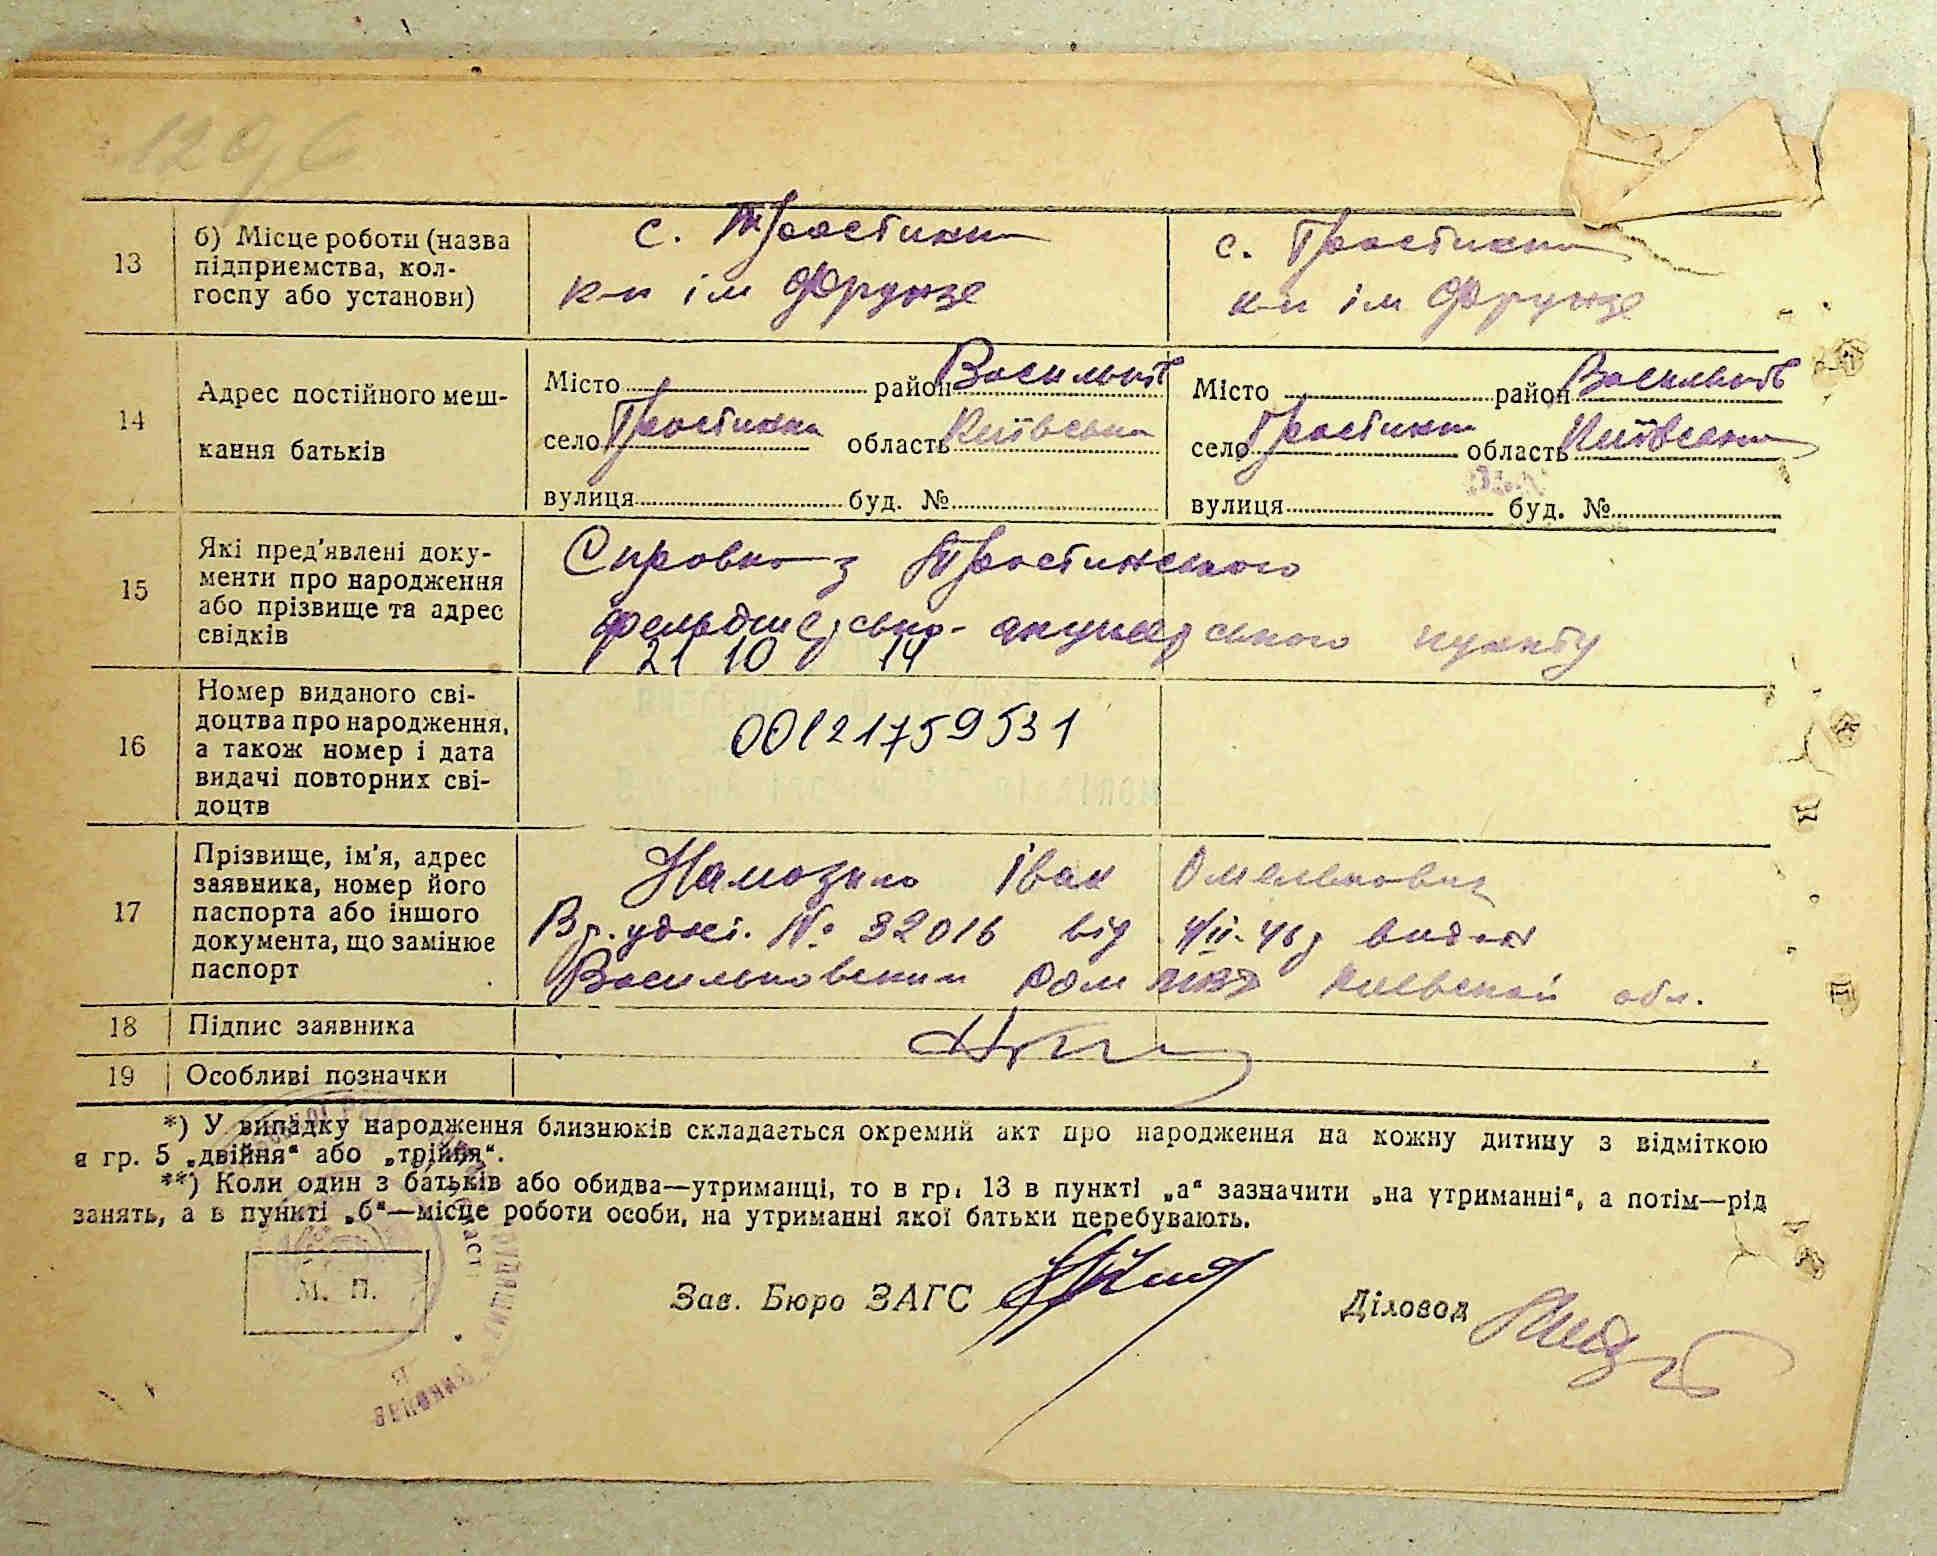 1296
13
б) Місце роботи (назва
підприємства, кол-
госпу або установи)
с. Тростинка
к-п ім Фрунзе
с. Тростинка
к-п ім Фрунзе
14
Адрес постійного меш-
кання батьків
Місто район Васильків
село Тростинка область Київська
вулиця буд. №
Місто район Васильків
село Тростинка область Київська
вулиця буд. №
15
Які пред'явлені доку-
менти про народження
або прізвище та адрес
свідків
Справка з Тростинського
фельдшерсько-акушерського пункту
21 10 14
16
Номер виданого сві-
доцтва про народження,
а також номер і дата
видачі повторних сві-
доцтв
00121759531
17
Прізвище, ім'я, адрес
заявника, номер його
паспорта або іншого
документа, що замінює
паспорт
Іван Омелькович
Вр. удост. № 32016 від 4/II-46р видан
Васильковским РОМ МВД Киевской обл.
18
Підпис заявника
19
Особливі позначки
*) У випадку народження близнюків складається окремий акт про народження на кожну дитину з відміткою
в гр. 5 „двійня“ або „трійня“.
**) Коли один з батьків або обидва—утриманці, то в гр. 13 в пункті „а“ зазначити „на утриманні“, а потім—рід
занять, а в пункті „б“—місце роботи особи, на утриманні якої батьки перебувають.
М. П.
Зав. Бюро ЗАГС
Діловод